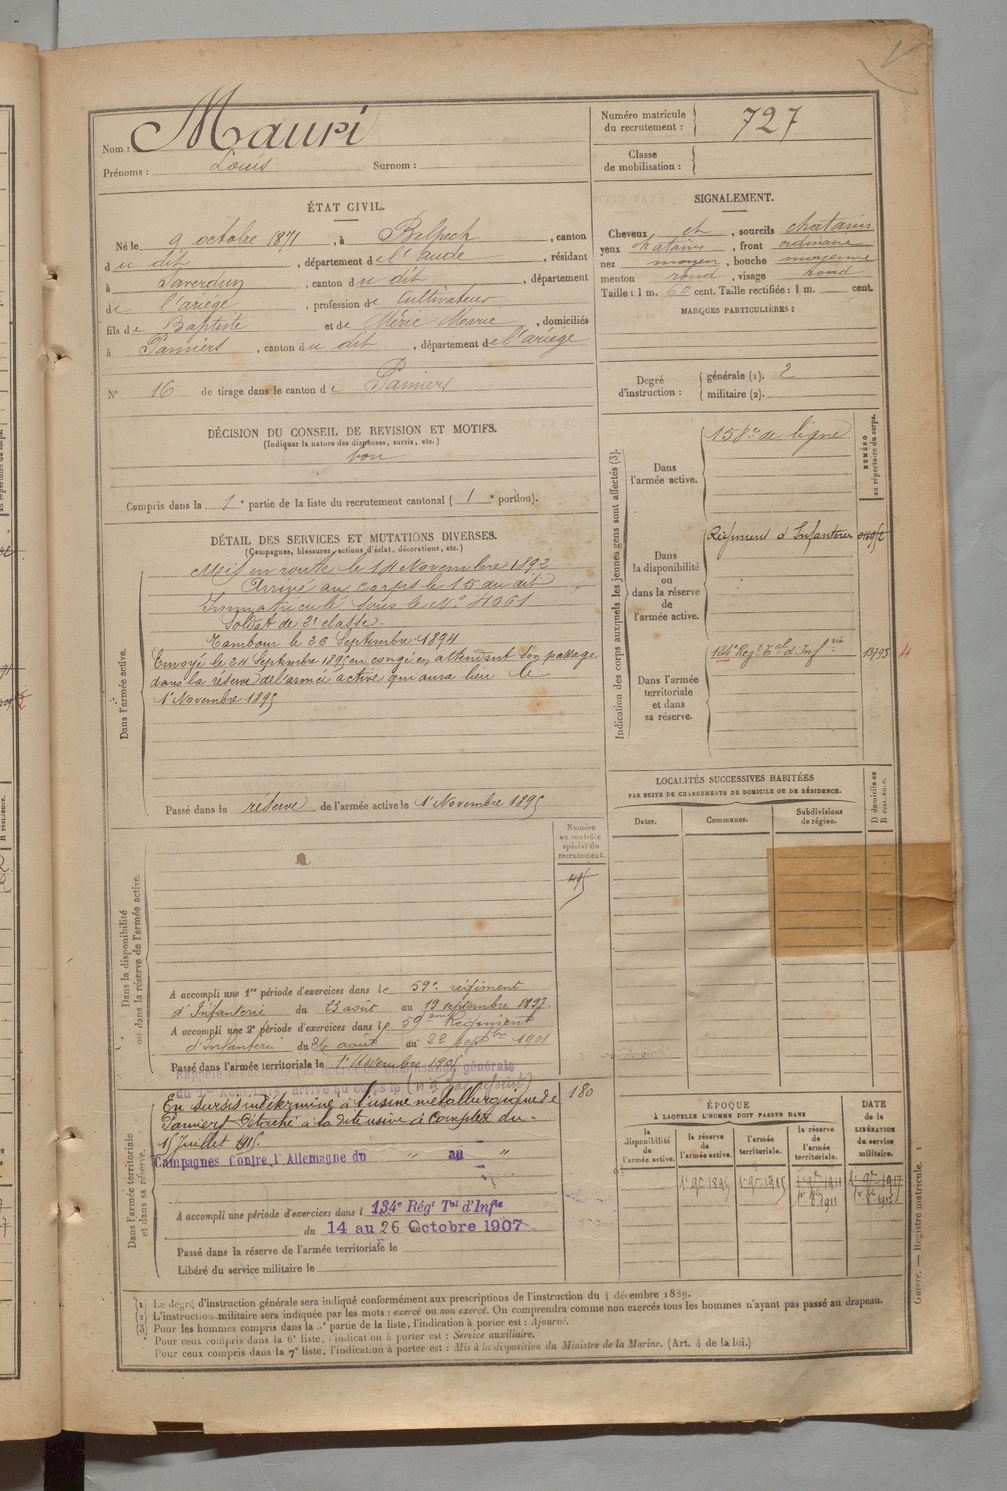 Nom : Mauri
Prénoms : Louis Surnom :
Numéro matricule du recrutement : 727
Classe de mobilisation :
ÉTAT CIVIL.
Né le 9 octobre 1871, à Belpech, canton
du dit, département de l'aude, résidant
à Saverdun, canton du dit, département
de l'ariége, profession de Cultivateur
fils de Baptiste et de Méric Marie, domiciliés
à Pamiers, canton du dit, département de l'ariége
N° 16 de tirage dans le canton de Pamiers
SIGNALEMENT.
Cheveux et, sourcils chatains
yeux chatains, front ordinaire
nez moyen, bouche moyenne
menton rond, visage rond
Taille : 1 m. 60 cent. Taille rectifiée : 1 m. cent.
MARQUES PARTICULIÈRES :
Degré d'instruction : générale (1). 2
militaire (2).
DÉCISION DU CONSEIL DE REVISION ET MOTIFS.
(Indiquer la nature des dispenses, sursis, etc.)
bon
Compris dans la 1e partie de la liste du recrutement cantonal (1e portion).
DÉTAIL DES SERVICES ET MUTATIONS DIVERSES.
(Campagnes, blessures, actions d'éclat, décorations, etc.)
Dans l'armée active.
Mis en route le 14 Novembre 1892
Arrivé au corps le 15 du dit
Immatriculé sous le N° 4061
Soldat de 2e classe.
Tambour le 26 Septembre 1894
Envoyé le 24 Septembre 1895 en congé en attendant son passage
dans la réserve de l'armée active qui aura lieu le
1er Novembre 1895
Passé dans la réserve de l'armée active le 1er Novembre 1895
Indication des corps auxquels les jeunes gens sont affectés (3).
NUMÉRO au répertoire du corps.
Dans l'armée active.
158e de ligne
Dans la disponibilité ou dans la réserve de l'armée active.
Régiment d'Infanterie
Dans l'armée territoriale et dans sa réserve.
134e Reg. Tal d'Infrie 19795
4
LOCALITÉS SUCCESSIVES HABITÉES
PAR SUITE DE CHANGEMENTS DE DOMICILE OU DE RÉSIDENCE.
Dates. Communes. Subdivisions de région. D domicile ou R résidence.
Dans la disponibilité ou dans la réserve de l'armée active.
Numéro au contrôle spécial du recrutement.
A accompli une 1re période d'exercices dans le 59e régiment
d'Infanterie du 23 août au 19 septembre 1897.
A accompli une 2e période d'exercices dans le 59eme Régiment
d'infanterie du 26 août au 22 Septbre 1901
Passé dans l'armée territoriale le 1er Novembre 1905
Dans l'armée territoriale et dans sa réserve.
180
En sursis indéterminé à l'usine métallurgique de
Pamiers Détaché à la dite usine à compter du
15 Juillet 1915.
Campagnes Contre l'Allemagne du " au "
A accompli une période d'exercices dans l 134e Régt Tal d'Infie
du 14 au 26 Octobre 1907
Passé dans la réserve de l'armée territoriale le
Libéré du service militaire le
ÉPOQUE
À LAQUELLE L'HOMME DOIT PASSER DANS
la disponibilité de l'armée active. la réserve de l'armée active. l'armée territoriale. la réserve de l'armée territoriale.
DATE de la LIBÉRATION du service militaire.
1er 9bre 1895 1er 9bre 1905 1er 9bre 1911 1er 9bre 1917
Guerre. — Registre matricule. 1
(1) Le degré d'instruction générale sera indiqué conformément aux prescriptions de l'instruction du 4 décembre 1889.
(2) L'instruction militaire sera indiquée par les mots : exercé ou non exercé. On comprendra comme non exercés tous les hommes n'ayant pas passé au drapeau.
(3) Pour les hommes compris dans la 5e partie de la liste, l'indication à porter est : Ajourné.
Pour ceux compris dans la 6e liste, l'indication à porter est : Service auxiliaire.
Pour ceux compris dans la 7e liste, l'indication à porter est : Mis à la disposition du Ministre de la Marine. (Art. 4 de la loi.)